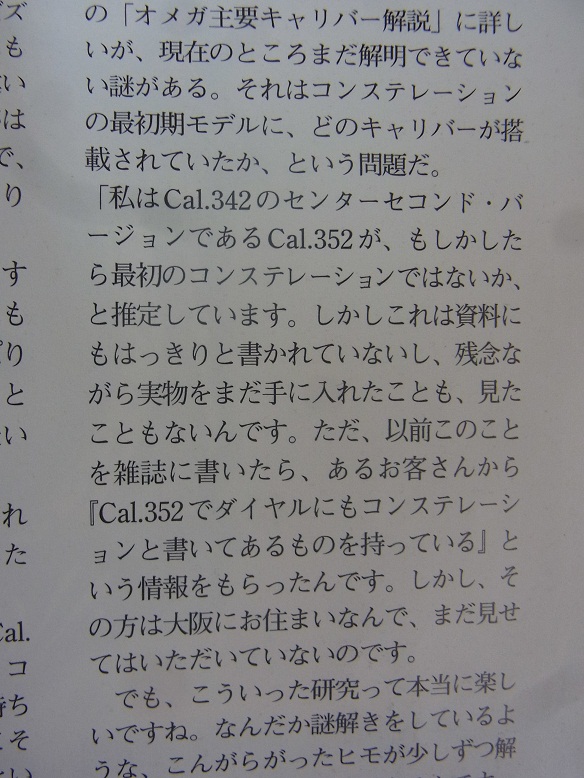 ズ
も
い
は
で、
り
す
も
り
と
い
れ
た
Cal.
コ
持ち
そ
の「オメガ主要キャリバー解説」に詳し
いが、現在のところまだ解明できていな
い謎がある。それはコンステレーション
の最初期モデルに、どのキャリバーが搭
載されていたか、という問題だ。
「私はCal.342のセンターセコンド・バ
ージョンであるCal.352が、もしかした
ら最初のコンステレーションではないか、
と推定しています。しかしこれは資料に
もはっきりと書かれていないし、残念な
がら実物をまだ手に入れたことも、見た
こともないんです。ただ、以前このこと
を雑誌に書いたら、あるお客さんから
『Cal.352でダイヤルにもコンステレーシ
ョンと書いてあるものを持っている』と
いう情報をもらったんです。しかし、そ
の方は大阪にお住まいなんで、まだ見せ
てはいただいていないのです。
でも、こういった研究って本当に楽し
いですね。なんだか謎解きをしているよ
うな、こんがらがったヒモが少しずつ解